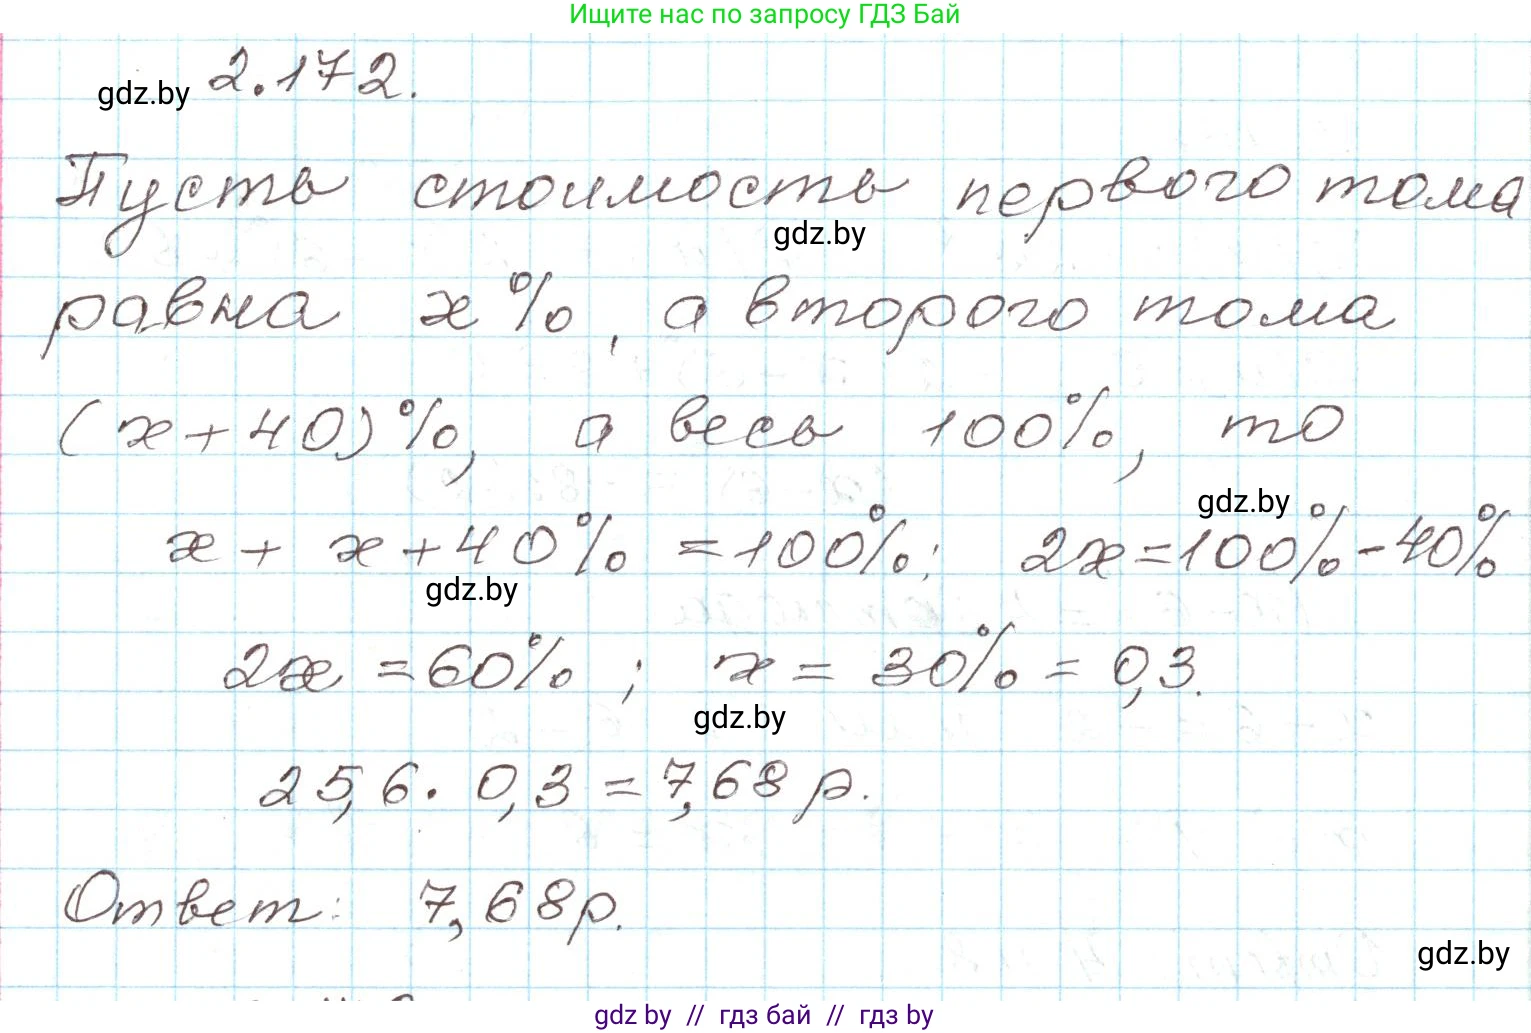 Ищите нас по запросу ГДЗ Бай
2.172.
gdz.by
Пусть стоимость первого тома
gdz.by
равна x%, а второго тома
(x+40)%, а весь 100%, то
gdz.by
x + x+40% =100%; 2x=100%-40%
gdz.by
2x =60% ; x = 30% = 0,3.
gdz.by
25,6 · 0,3 = 7,68 р.
Ответ: 7,68р.
gdz.by
gdz by // гдз бай // гдз by